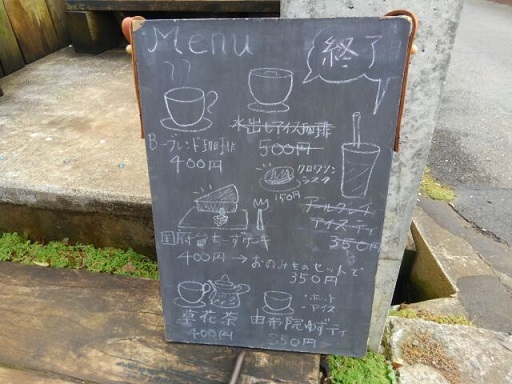 Menu
終了
B-ブレンド珈琲
400円
水出しアイス珈琲
500円
クロワッサン
ラスク
150円
アールグレイ
アイスティ
350円
チーズケーキ
400円→おのみものセットで
350円
・ホット
・アイス
400円
350円